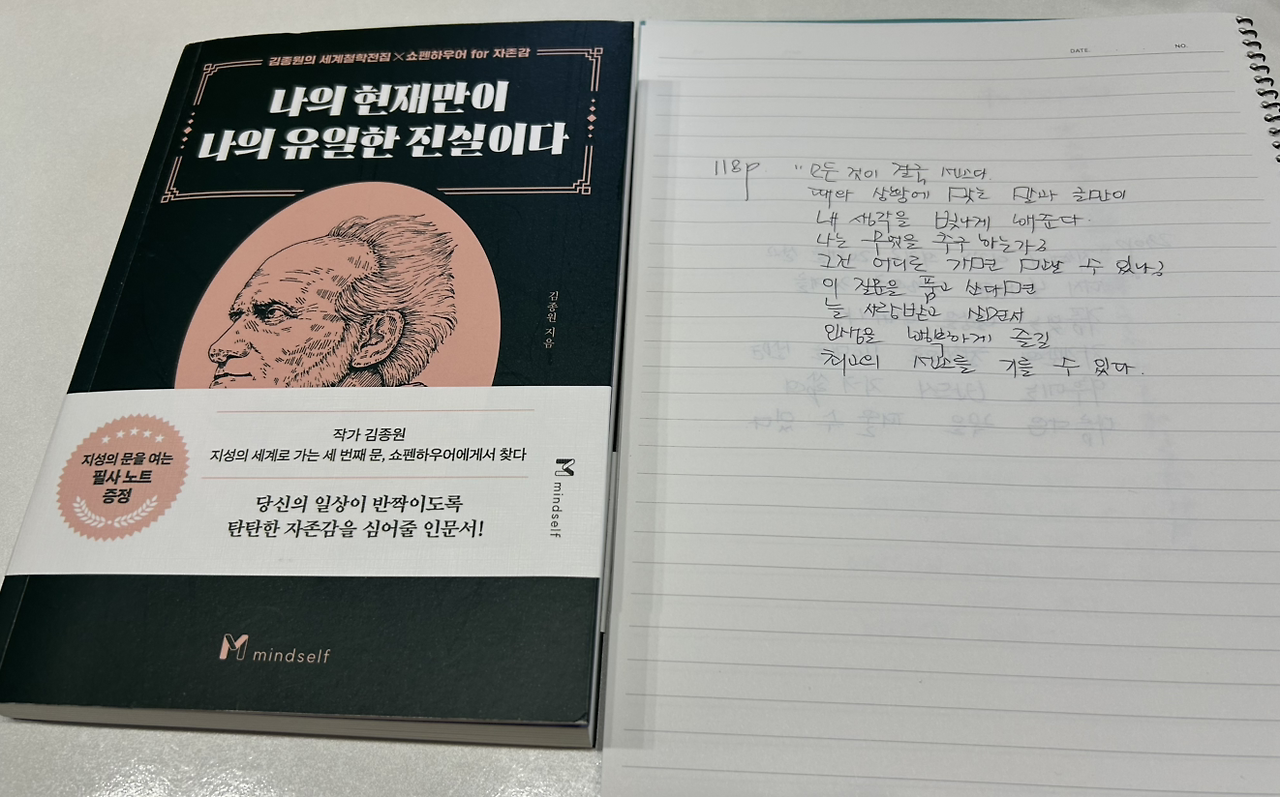 김종원의 세계철학전집×쇼펜하우어 for 자존감
나의 현재만이
나의 유일한 진실이다
김종원 지음
지성의 문을 여는
필사 노트
증정
작가 김종원
지성의 세계로 가는 세 번째 문, 쇼펜하우어에게서 찾다
당신의 일상이 반짝이도록
탄탄한 자존감을 심어줄 인문서!
mindself
mindself
DATE. NO.
118p "모든 것이 결국 센스다.
때와 상황에 맞는 말과 글만이
내 생각을 빛나게 해준다.
나는 무엇을 추구 하는가?
그건 어디로 가면 만날 수 있나?
이 질문을 품고 산다면
늘 사랑받고 살면서
인생을 행복하게 즐길
최고의 센스를 기를 수 있다.